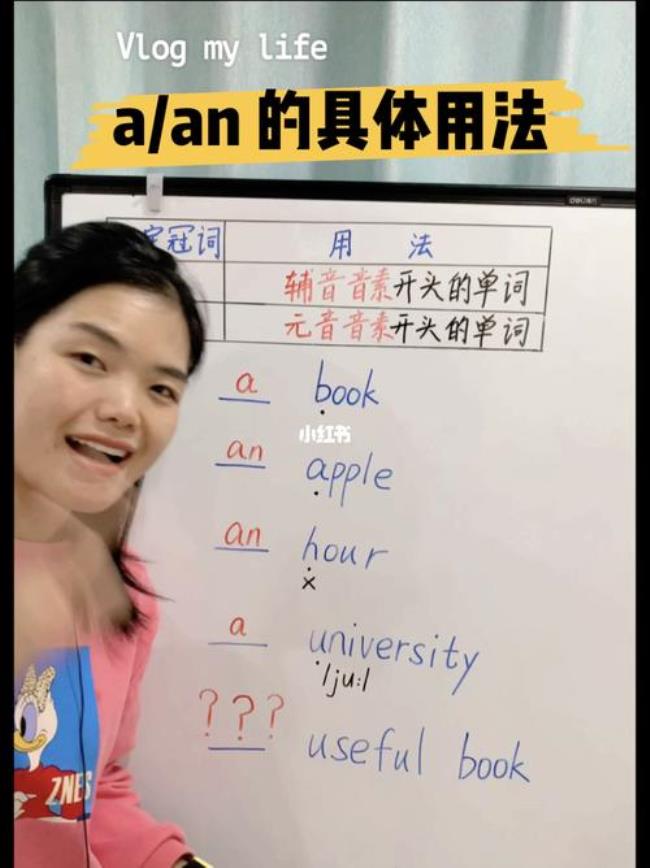 Vlog my life
a/an 的具体用法
定冠词 用 法
辅音音素开头的单词
元音音素开头的单词
a book
小红书
an apple
an hour
×
a university
/ju:/
??? useful book